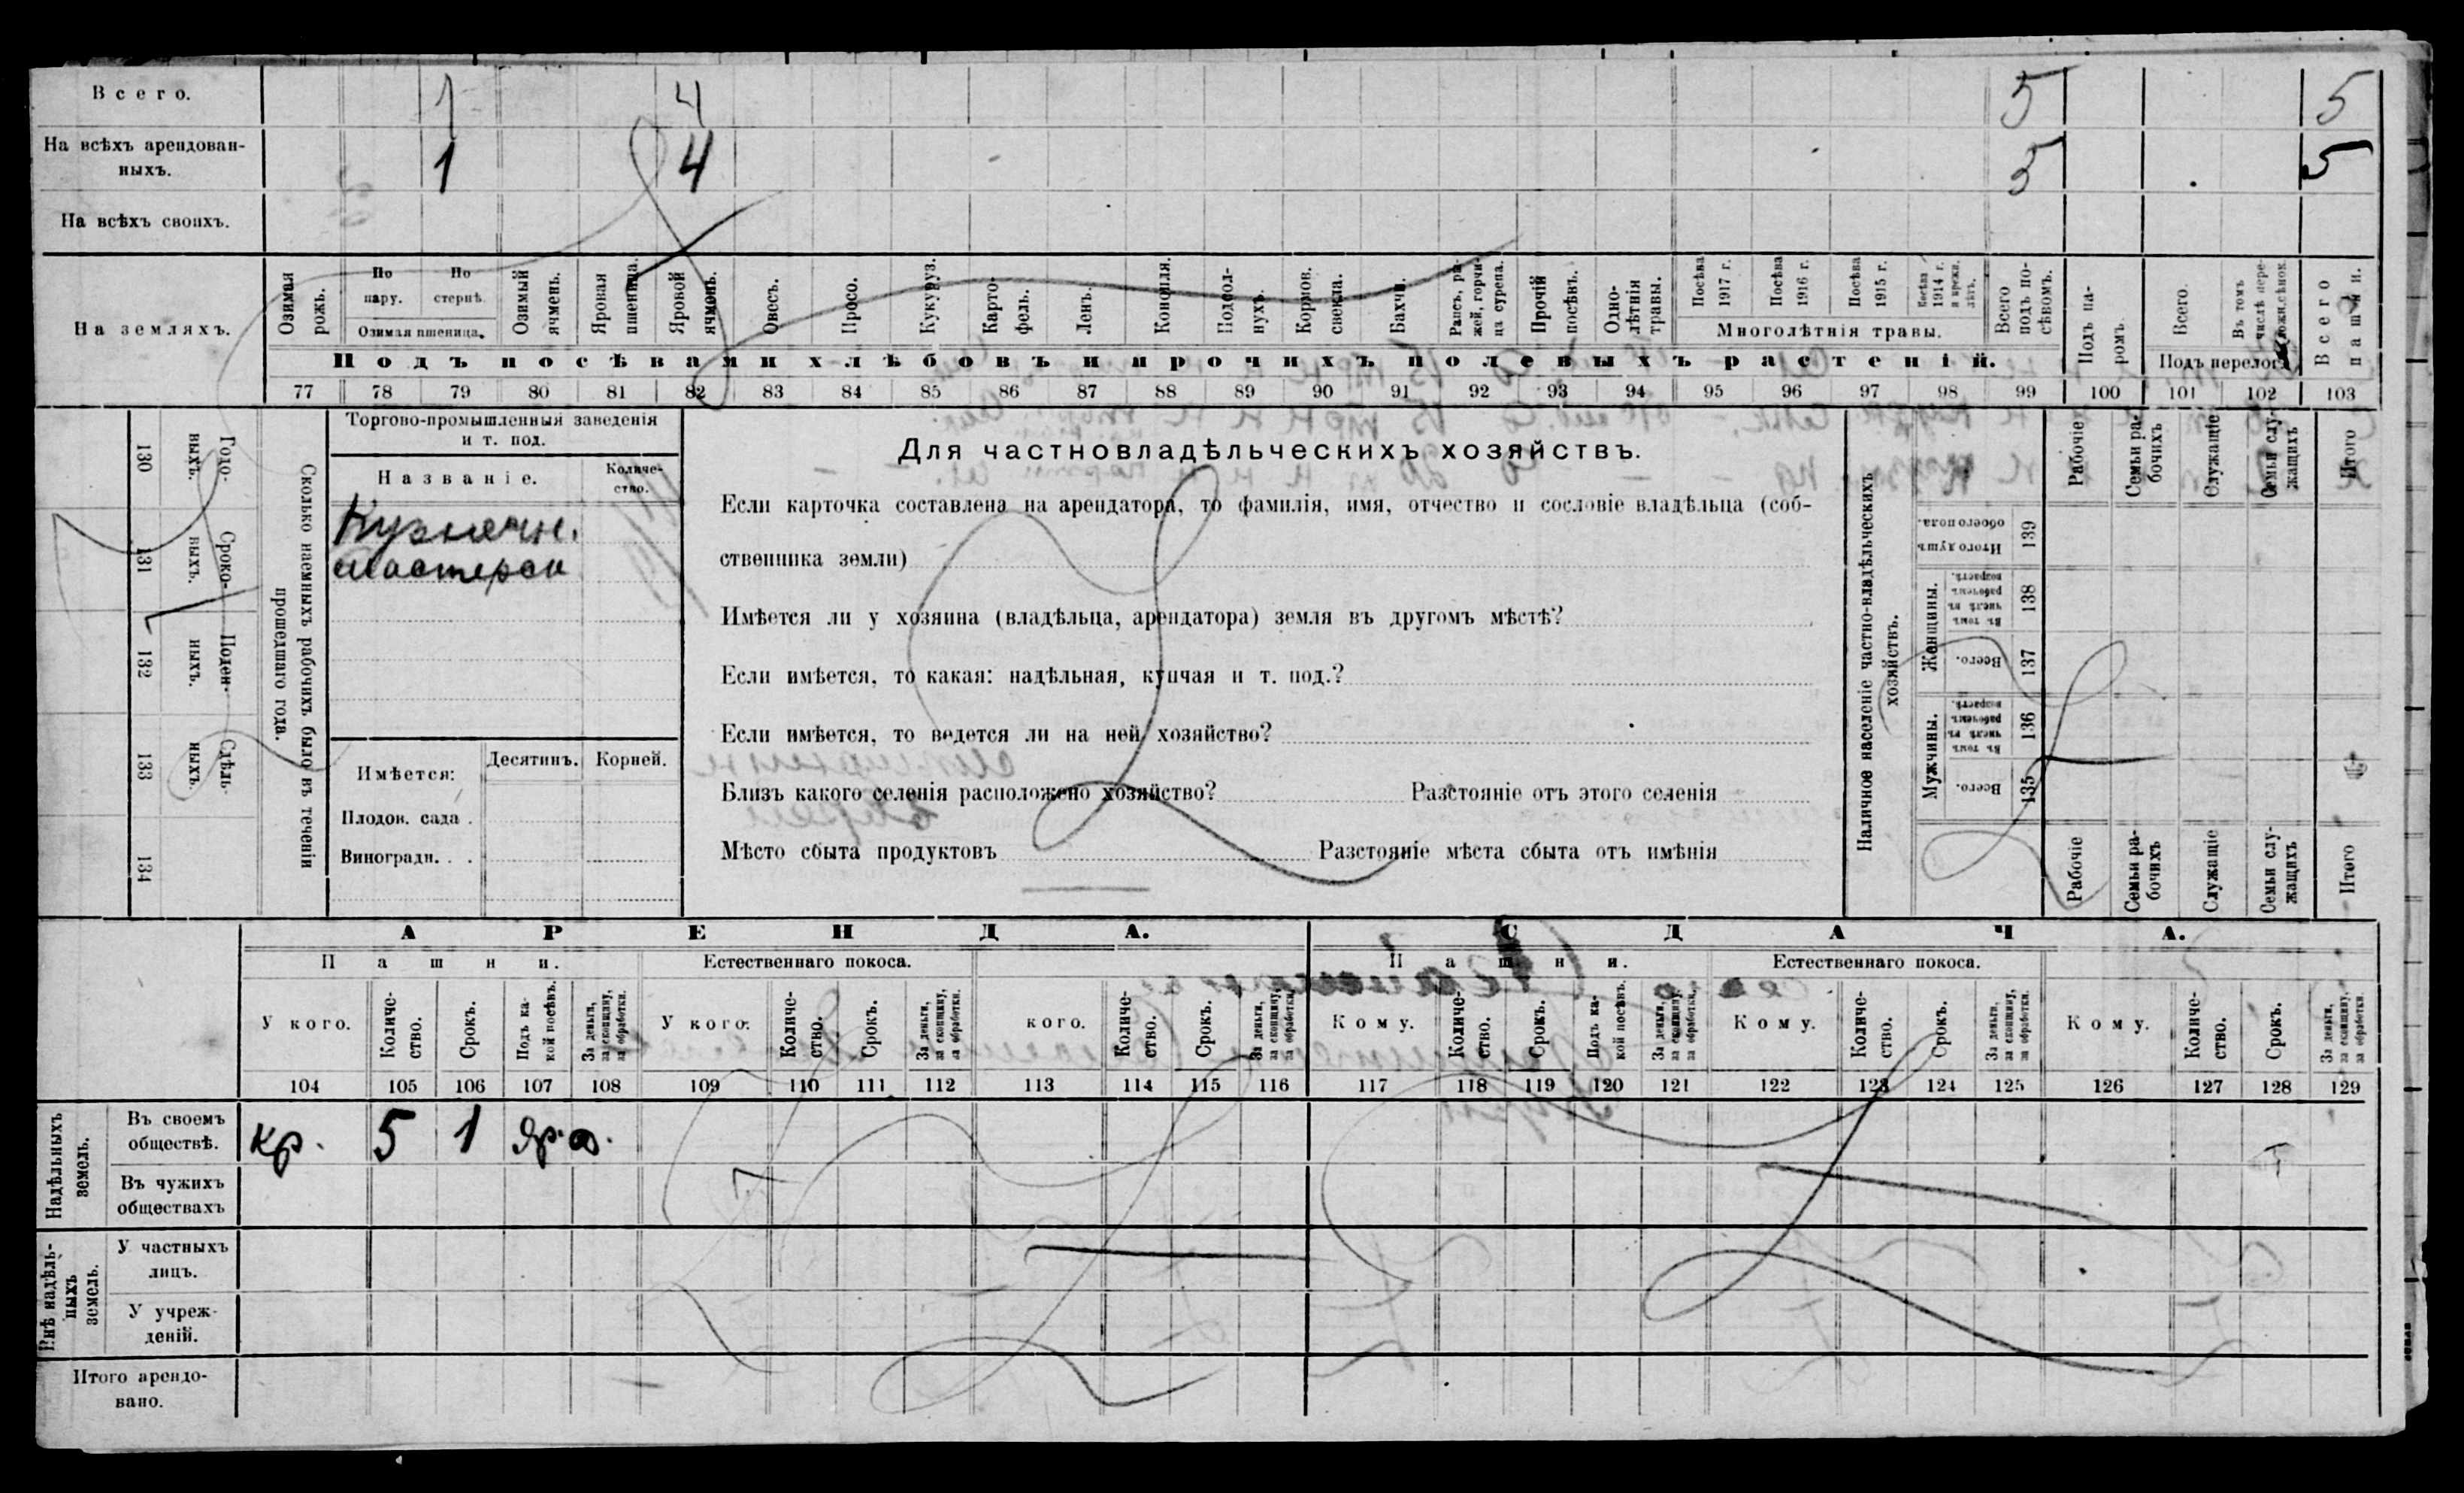 Всего. 1 4 5 5
На всѣхъ арендован-
ныхъ. 1 4 5 5
На всѣхъ своихъ.
На земляхъ.
Озимая рожь.
По пару.
По стернѣ.
Озимая пшеница.
Озимый ячмень.
Яровая пшеница.
Яровой ячмень.
Овесъ.
Просо.
Кукуруз.
Карто-
фель.
Ленъ.
Конопля.
Подсол-
нухъ.
Кормов. свекла.
Бахчи.
Рапсъ, ры-
жей, горчи-
ца сурепа.
Прочій посѣвъ.
Одно-
лѣтнія травы.
Посѣва 1917 г.
Посѣва 1916 г.
Посѣва 1915 г.
Посѣва 1914 г.
Многолѣтнія травы.
Всего подъ по-
сѣвомъ.
Подъ па-
ромъ.
Всего.
Въ томъ числѣ
Подъ перелог.
Всего пашни.
Подъ посѣвами хлѣбовъ и прочихъ полевыхъ растеній.
77 78 79 80 81 82 83 84 85 86 87 88 89 90 91 92 93 94 95 96 97 98 99 100 101 102 103
Сколько наемныхъ рабочихъ было въ теченіи
прошедшаго года.
Годо-
выхъ.
Сроко-
выхъ.
Поден-
ныхъ.
Сдѣль-
ныхъ.
130 131 132 133 134
Торгово-промышленныя заведенія
и т. под.
Названіе.
Количе-
ство.
Кузнечн.
мастерск
Имѣется: Десятинъ. Корней.
Плодов. сада .
Виноградн. . .
Для частновладѣльческихъ хозяйствъ.
Если карточка составлена на арендатора, то фамилія, имя, отчество и сословіе владѣльца (соб-
ственника земли)
Имѣется ли у хозяина (владѣльца, арендатора) земля въ другомъ мѣстѣ?
Если имѣется, то какая: надѣльная, купчая и т. под.?
Если имѣется, то ведется ли на ней хозяйство?
Близъ какого селенія расположено хозяйство? Разстояніе отъ этого селенія
Мѣсто сбыта продуктовъ Разстояніе мѣста сбыта отъ имѣнія
Наличное населеніе частно-владѣльческихъ
хозяйствъ.
Рабочіе
Семьи ра-
бочихъ
Служащіе
Семьи слу-
жащихъ
Итого
Итого душъ обоего пола.
139
Женщины.
Въ томъ числѣ въ рабочемъ возрастѣ.
138
Всего.
137
Мужчины.
Въ томъ числѣ въ рабочемъ возрастѣ.
136
Всего.
135
Рабочіе
Семьи ра-
бочихъ
Служащіе
Семьи слу-
жащихъ
Итого
АРЕНДА. СДАЧА.
Пашни. Естественнаго покоса. Пашни. Естественнаго покоса.
У кого.
Количе-
ство.
Срокъ.
Подъ ка-
кой посѣвъ.
За деньги,
за скопщину,
за обработки.
У кого.
Количе-
ство.
Срокъ.
За деньги,
за скопщину,
за обработки.
кого.
Количе-
ство.
Срокъ.
За деньги,
за скопщину,
за обработки.
Кому.
Количе-
ство.
Срокъ.
Подъ ка-
кой посѣвъ.
За деньги,
за скопщину,
за обработки.
Кому.
Количе-
ство.
Срокъ.
За деньги,
за скопщину,
за обработки.
Кому.
Количе-
ство.
Срокъ.
За деньги,
за скопщину,
за обработки.
104 105 106 107 108 109 110 111 112 113 114 115 116 117 118 119 120 121 122 123 124 125 126 127 128 129
Надѣльныхъ
земель.
Въ своемъ
обществѣ. кр. 5 1 яр. д.
Въ чужихъ
обществахъ
Внѣ надѣль-
ныхъ
земель.
У частныхъ
лицъ.
У учреж-
деній.
Итого арендо-
вано.